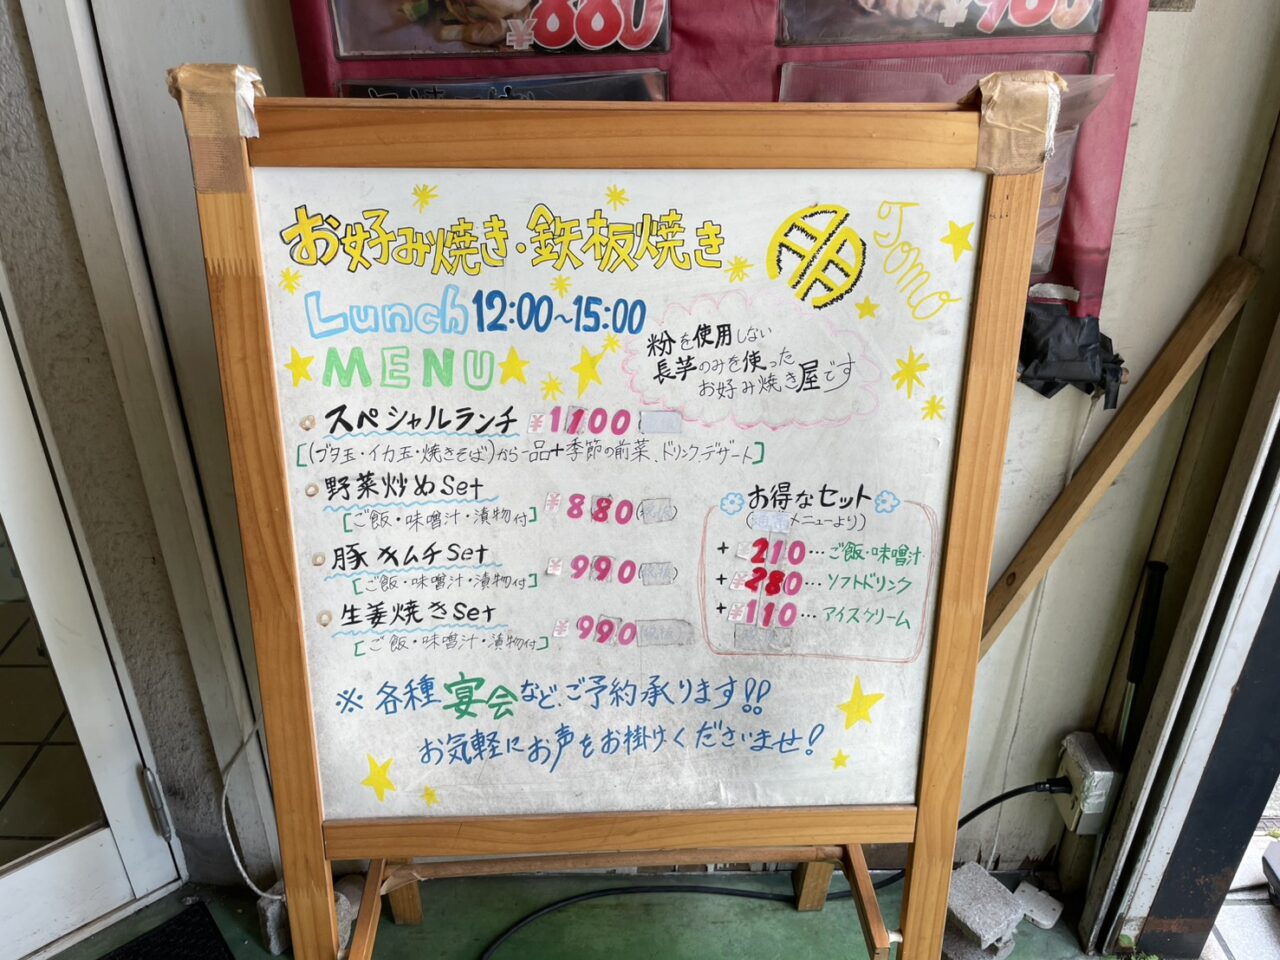 ¥880
¥980
お好み焼き・鉄板焼き
Tomo
Lunch 12:00~15:00
MENU
粉を使用しない
長芋のみを使った
お好み焼き屋です
スペシャルランチ ¥1100
[(ブタ玉・イカ玉・焼きそば)から一品+季節の前菜、ドリンク、デザート]
野菜炒めset ¥880
[ご飯・味噌汁・漬物付]
豚キムチset ¥990
[ご飯・味噌汁・漬物付]
生姜焼きset ¥990
[ご飯・味噌汁・漬物付]
お得なセット
メニューより)
+ ¥210…ご飯・味噌汁
+ ¥280…ソフトドリンク
+ ¥110…アイスクリーム
※各種宴会など、ご予約承ります!!
お気軽にお声をお掛けくださいませ!